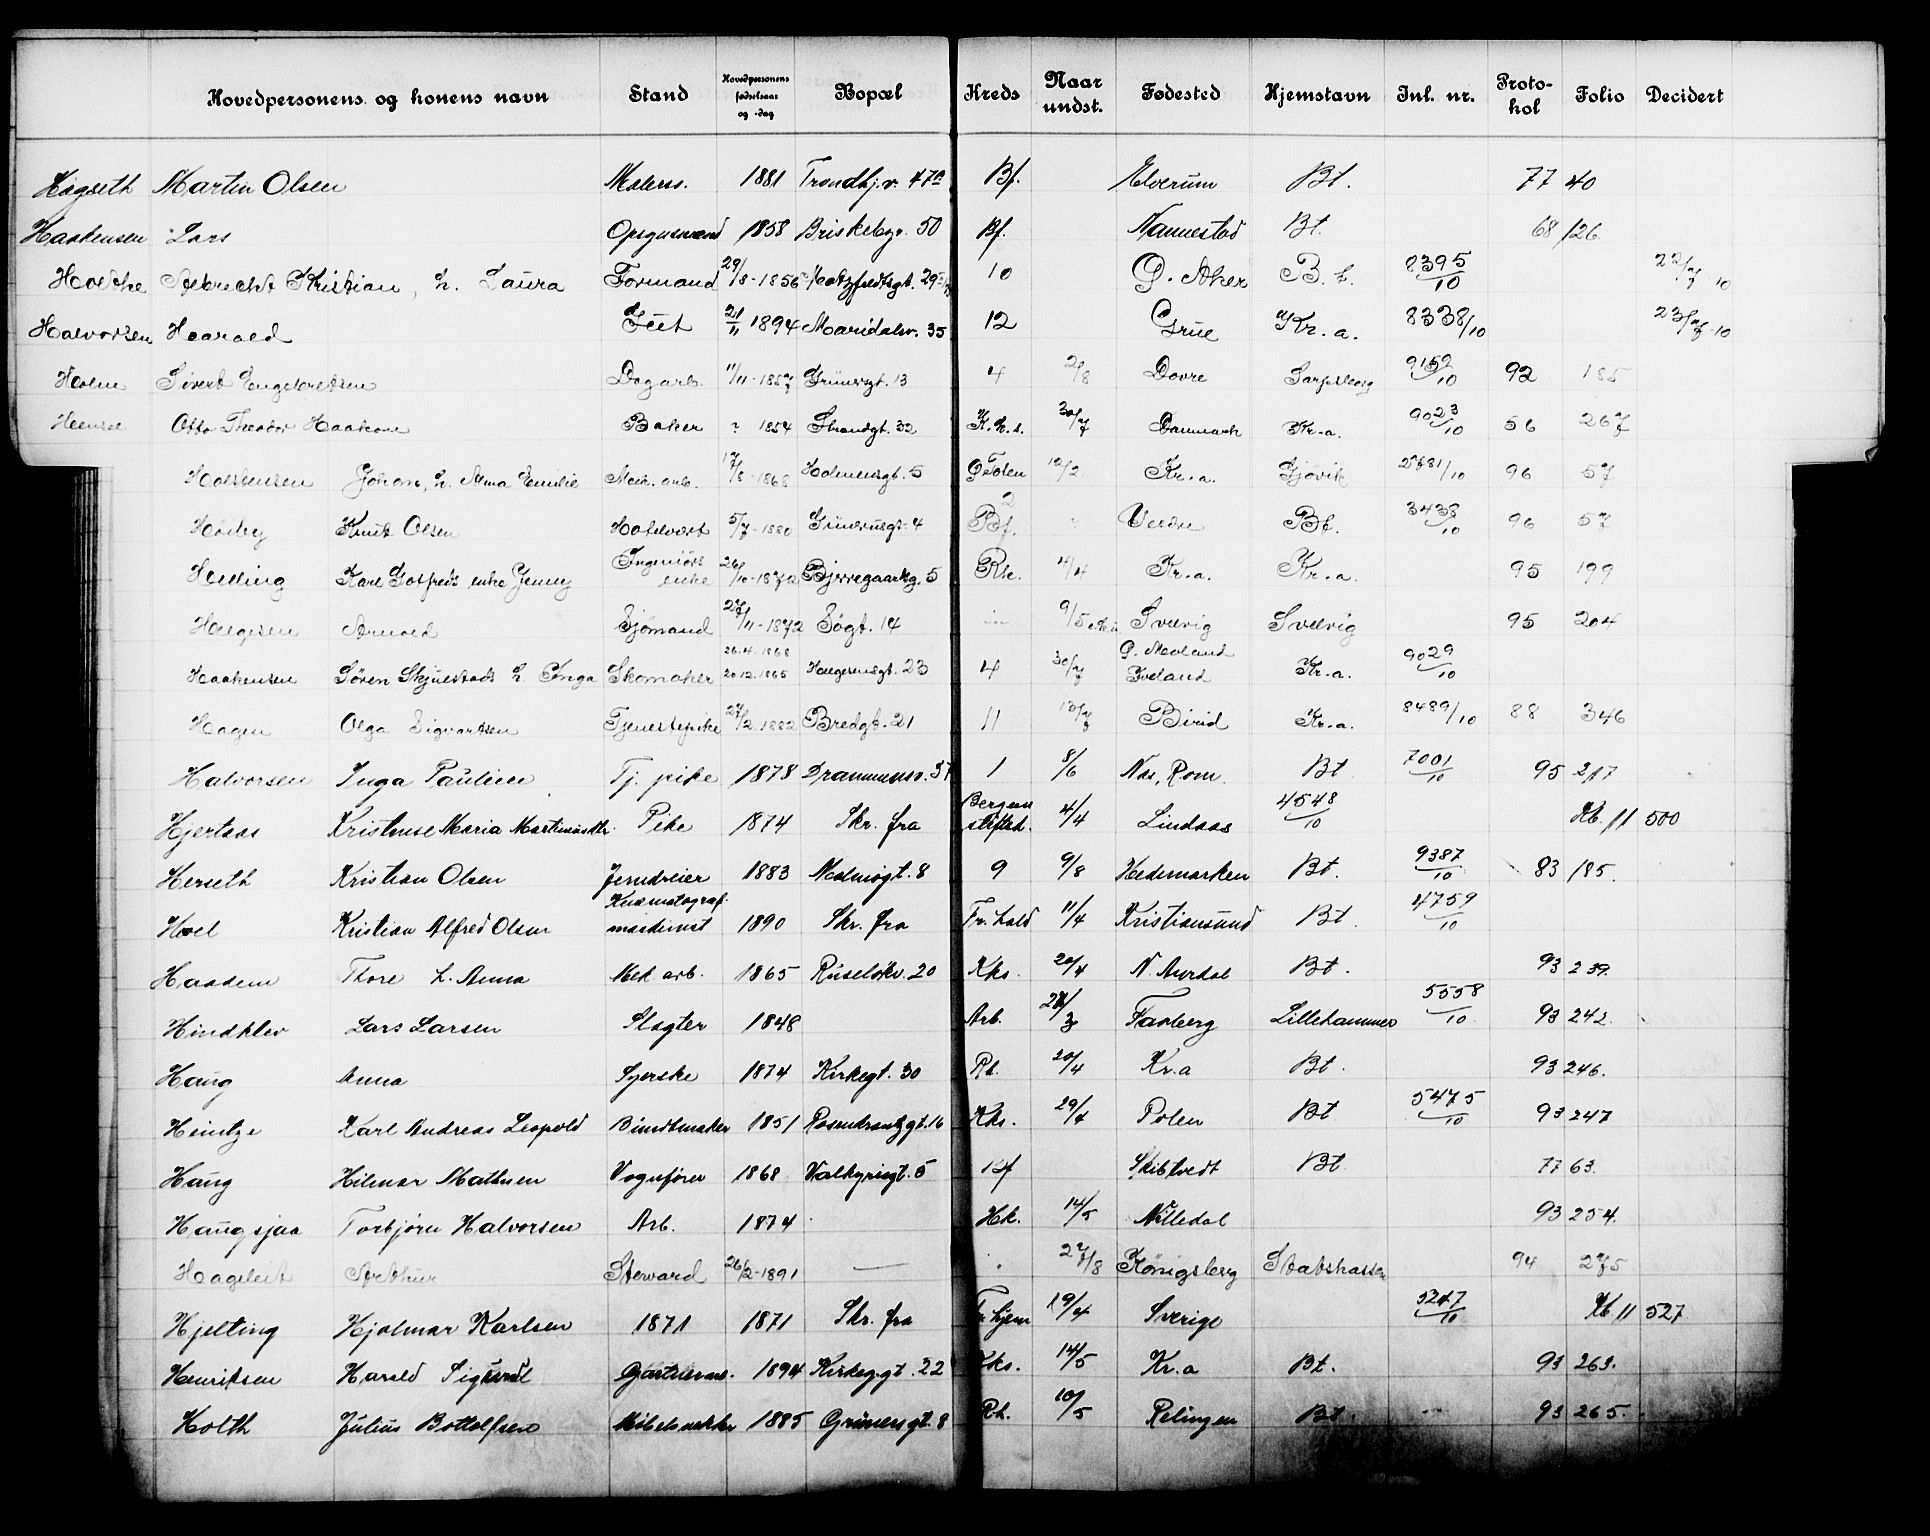 Hovedpersonens og konens navn Stand Hovedpersonens fødselsaar og -dag Bopæl Kreds Naar undst. Fødested Hjemstavn Inl. nr. Protokol Folio Decidert
Høgseth Martin Olsen Malersv. 1881 Trondhj.v. 47a Bf. Elverum Bt. 77 40
Haakensen Lars Opsynsmand 1858 Briskebyv. 50 Bf. Nannestad Bt. 68 126
Holthe Albrecht Kristian, h. Laura Formand 29/8-1856 29 10 Ø. Aker B.t. 8395/10 22/7 10
Halvorsen Harald 21/11 1894 Maridalsv. 35 12 Grue Kr.a. 8338/10 10
Holm Sivert Engebretsen Dagarb. 11/11-1857 Grünersgt. 13 4 2/8 Dovre Sarpsborg 9152/10 92 185
Otto Theodor Haakon Baker ? 1854 Strandgt. 32 K.h.s. 30/7 Danmark Kr.a. 9023/10 56 267
Holstensen Johan, h. Alma Emilie Mek. arb. 17/8-1868 Holmensgt. 5 Ø Toten 12/2 Kr.a. Gjøvik 96 57
Knut Olsen Hotelvært 5/7-1880 Grünersgt. 4 2 Bf. Bt. 3438/10 96 57
Helling Karl Gotfreds enke Jenny Ingeniørs enke 26/10-1872 Bjerregaardsg. 5 Rh. 4/4 Kr.a. Kr.a. 95 199
Helgesen Arnold Sjømand 27/11-1872 Søgt. 14 9/5 Svelvig Svelvig 95 204
Haakensen Søren Skjulestads h. Inga Skomaker 26.4.1868 20.12.1865 Helgesensgt. 23 4 30/7 Ø. Moland Iveland Kr.a. 9029/10
Hagen Olga Sigvartsen Tjenestepike 27/2.1882 Bredgt. 21 11 13/7 Birid Kr.a. 8489/10 88 346
Halvorsen Inga Pauline Tj. pike 1878 Drammensv. 37 1 8/6 Nes, Rom. Bt 7001/10 95 217
Hjertaas Kristense Maria Martinusdtr. Pike 1874 Skr. fra Bergens stiftsd. 4/4 Lindaas 4548/10 Kb. 11 500
Herseth Kristian Olsen Jerndreier 1883 Malmøgt. 8 9 9/8 Hedemarken Bt. 9387/10 83 185.
Hoel Kristian Alfred Olsen Kinematograf maskinist 1890 Skr. fra Fr.hald 11/4 Kristiansund Bt 4759/10
Haadem Thore h. Anna Mek arb. 1865 Ruseløkv. 20 Kks. 20/4 N. Aurdal Bt. 93 239.
Hindklev Lars Larsen Slagter 1848 Arb. Faaberg Lillehammer 5558/10 93 242.
Haug Anna Syerske 1874 Kirkegt. 30 Rh. 20/4 Kr.a Bt. 93 246.
Heintze Karl Andreas Leopold Buntmaker 1851 Rosenkrantzgt. 16 Kks. 29/4 Polen Bt 5475/10 93 247
Haug Hilmar Mathisen Vognfører 1868 Valkyriegt. 5 Bf Skibtvedt Bt. 77 63.
Haugsjaa Torbjørn Halvorsen Arb. 1874 Hk. 14/5 Nissedal 93 254.
Hageleit Arthur Steward 26/2-1891 — 27/8 Königsberg Statskassen 94 275
Hjelting Hjalmar Karlsen 1871 1871 Skr. fra Fr.hjem 19/4 Sverige 5247/10 Kb. 11 527
Henriksen Harald Sigurd Gartnerarb. 1894 Kirkeggt. 22 Kks. 14/5 Kr.a Bt. 93 263.
Holth Julius Bottolfsen Møbelsnekker 1885 Grünersgt. 8 Rh. 10/5 Relingen Bt. 93 265.